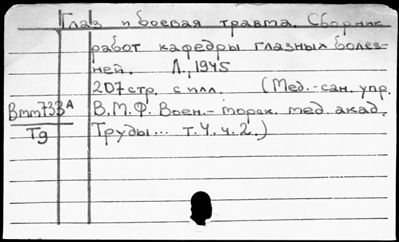 Глаз и боевая травма. Сборник
работ кафедры глазных болез-
ней. Л., 1945
207 стр. с илл. (Мед.-сан. упр.
Вmm733А В.М.Ф. Воен.-морск. мед. акад.
Тg Труды... т.4.ч.2.)